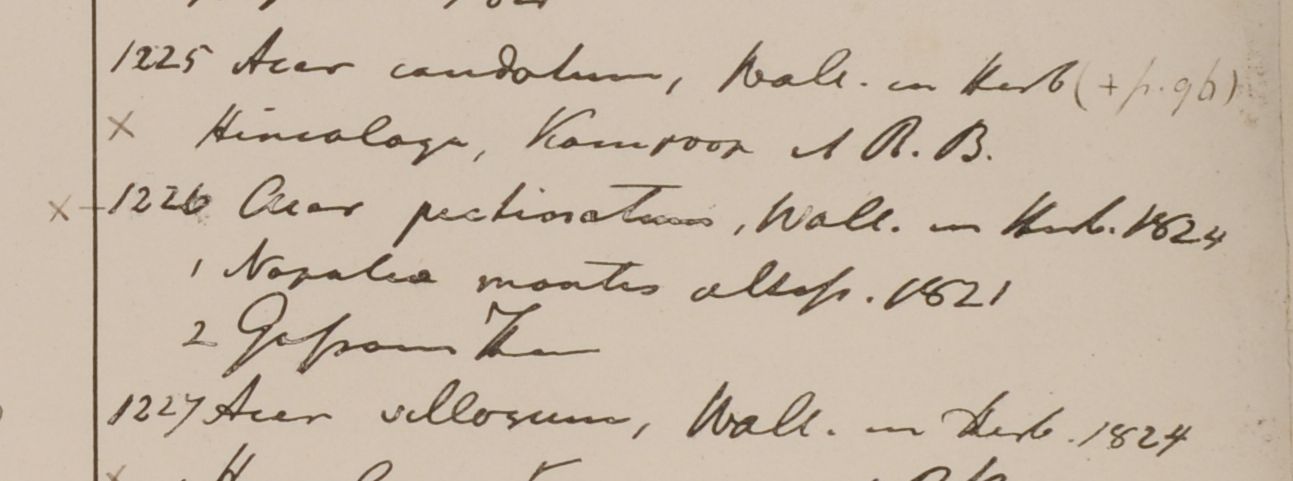 1225 Acer caudatum, Wall. in Herb (+ p. 96)
x Himalaya, Kamroop et R. B.
x 1226 Acer pectinatum, Wall. in Herb. 1824
1 Napalia montes altiss. 1821
2 Gossain Than
1227 Acer villosum, Wall. in Herb. 1824